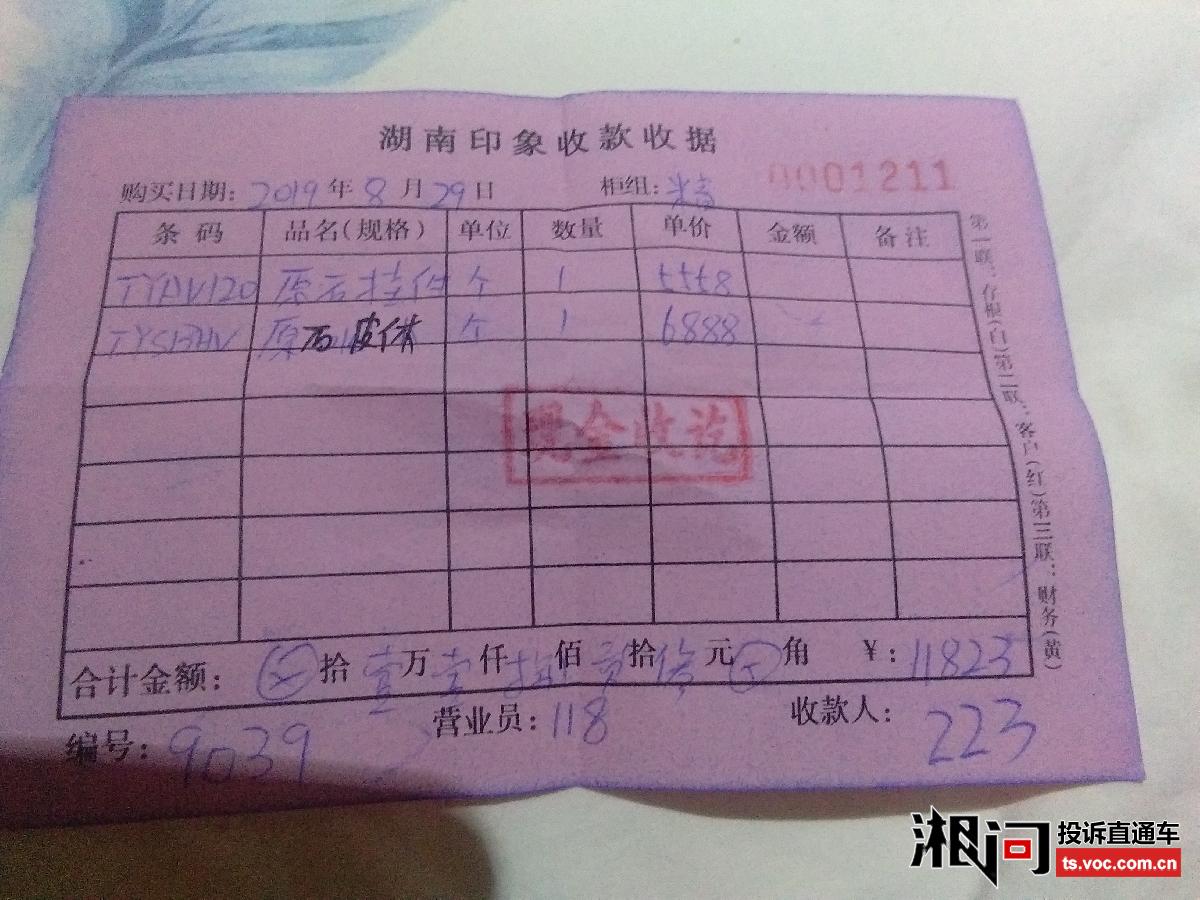 湖南印象收款收据
0001211
购买日期: 2019 年 8 月 29 日 柜组:
条码 品名(规格) 单位 数量 单价 金额 备注
原石挂件 个 1 5558
原石皮体 个 1 6888
现金收讫
合计金额: 拾 壹 万 壹 仟 捌 佰 贰 拾 叁 元 角 ¥: 11823
编号: 9039 营业员: 118 收款人: 223
第一联:存根(白)第二联:客户(红)第三联:财务(黄)
湘问 投诉直通车
ts.voc.com.cn